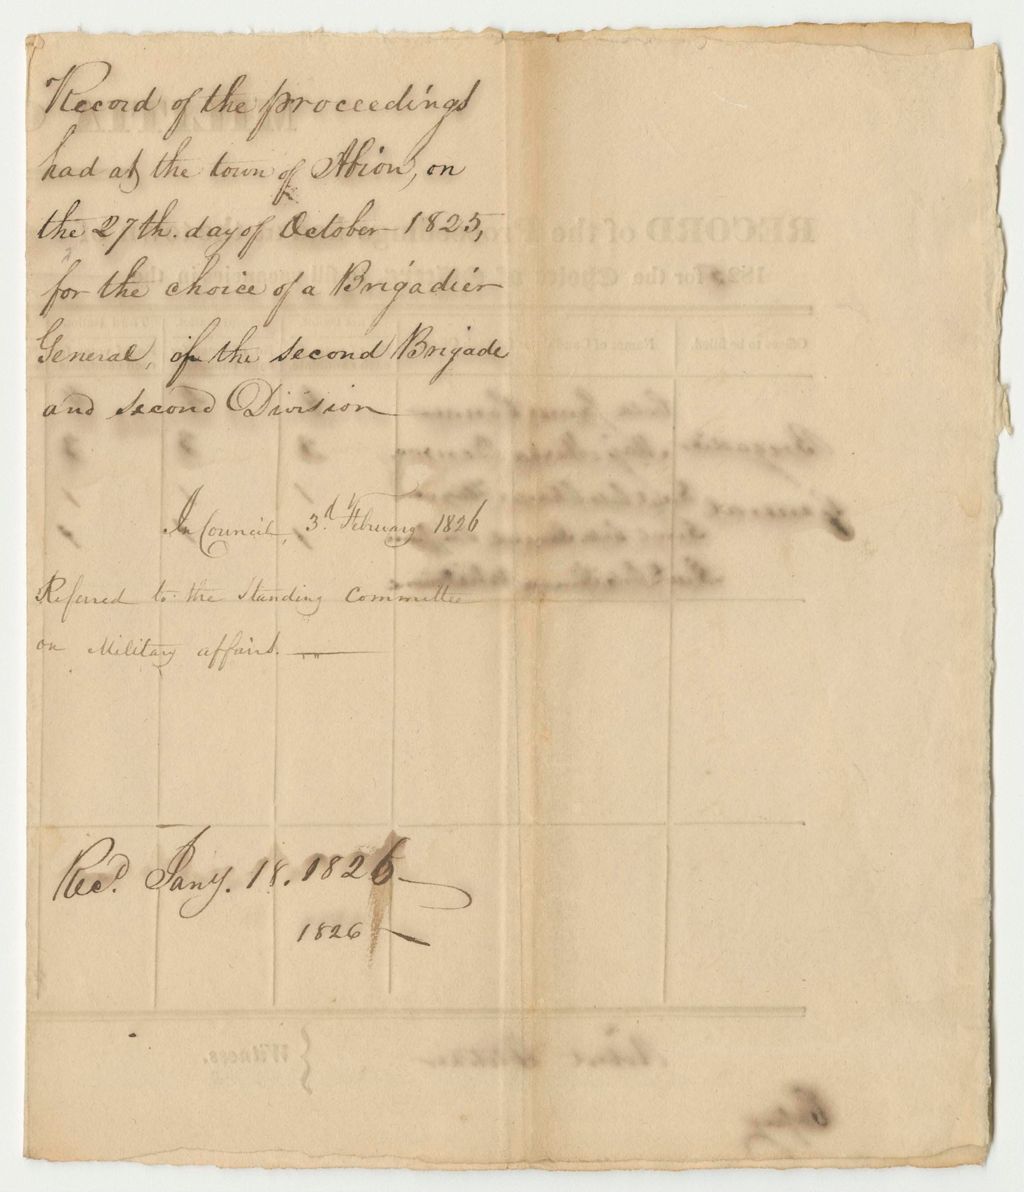 Record of the proceedings
had at the town of Abion, on
the 27th. day of October 1825,
for the choice of a Brigadier
General, of the second Brigade
and second Division
In Council, 3d February 1826
Referred to the Standing Committee
on Military affairs.
Recd. Jany. 18. 1826
1826